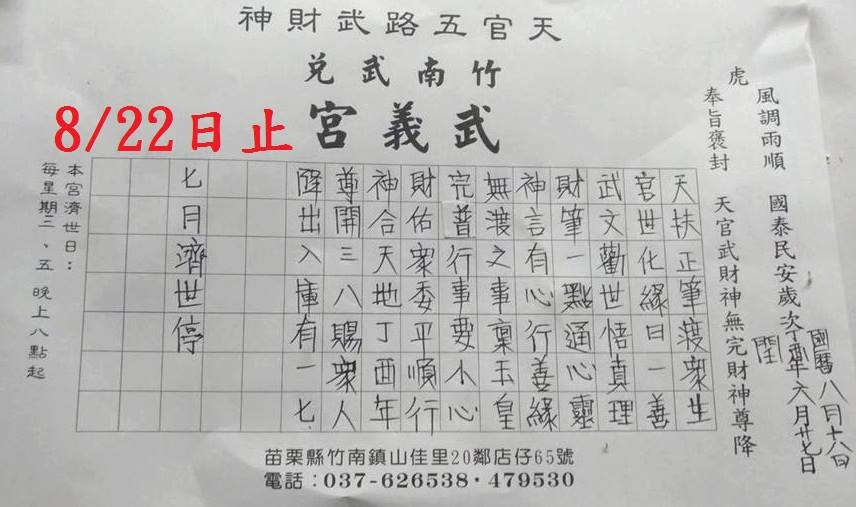 天官五路武財神
竹南武兌
武義宮
8/22日止
虎
風調雨順 國泰民安歲次丁酉年閏六月廿七日
國曆八月十八日
奉旨褒封 天官武財神無完財神尊降
天扶正筆渡眾生
官世化緣日一善
武文勸世悟真理
財筆一點通心靈
神言有心行善緣
無渡之事稟玉皇
完普行事要小心
財佑眾委平順行
神合天地丁酉年
尊開三八賜眾人
降出入庫有一七
七月濟世停
本宮濟世日：
每星期三、五 晚上八點起
苗栗縣竹南鎮山佳里20鄰店仔65號
電話：037-626538·479530